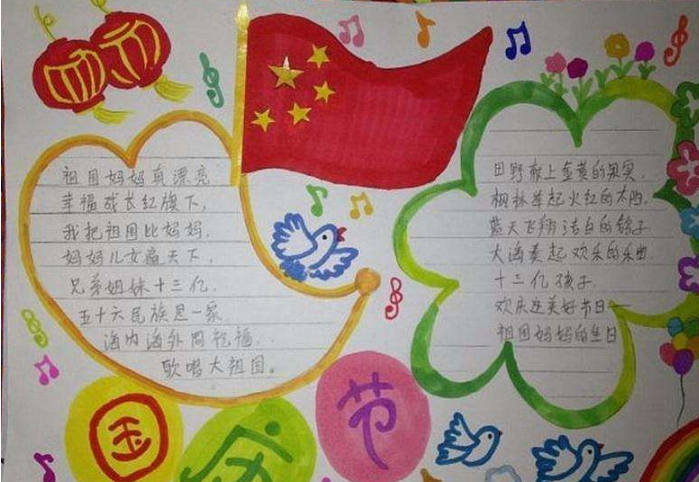 祖国妈妈真漂亮
幸福成长红旗下,
我把祖国比妈妈.
妈妈儿女遍天下,
兄弟姐妹十三亿.
五十六民族是一家.
海内海外同祝福.
歌唱大祖国。
田野献上金黄的果实.
枫林举起火红的太阳.
蓝天飞翔洁白的鸽子.
大海奏起欢乐的乐曲.
十三亿孩子.
欢庆这美好节日——
祖国妈妈的生日
国庆节